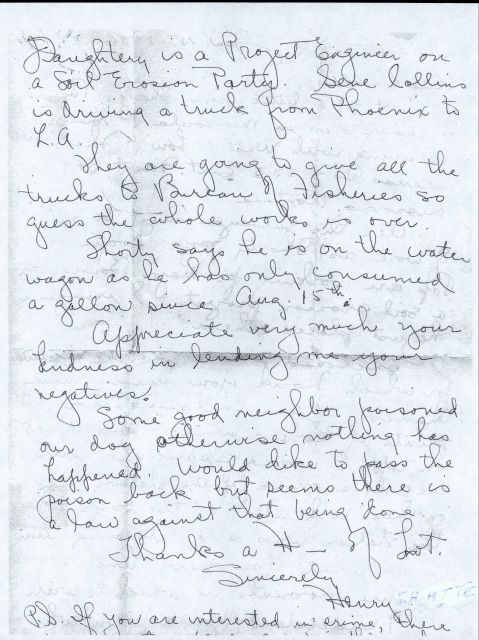 Daughtery is a Project Engineer on
a Soil Erosion Party. Gene Collins
is driving a truck from Phoenix to
L.A.
They are going to give all the
trucks to Bureau of Fisheries so
guess the whole works is over.
Shorty says he is on the water
wagon as he has only consumed
a gallon since Aug. 15th.
Appreciate very much your
kindness in lending me your
negatives.
Some good neighbor poisoned
our dog otherwise nothing has
happened. Would like to pass the
poison back but seems there is
a law against that being done.
Thanks a H— of Lot.
Sincerely
Henry
P.S. If you are interested in crime, there